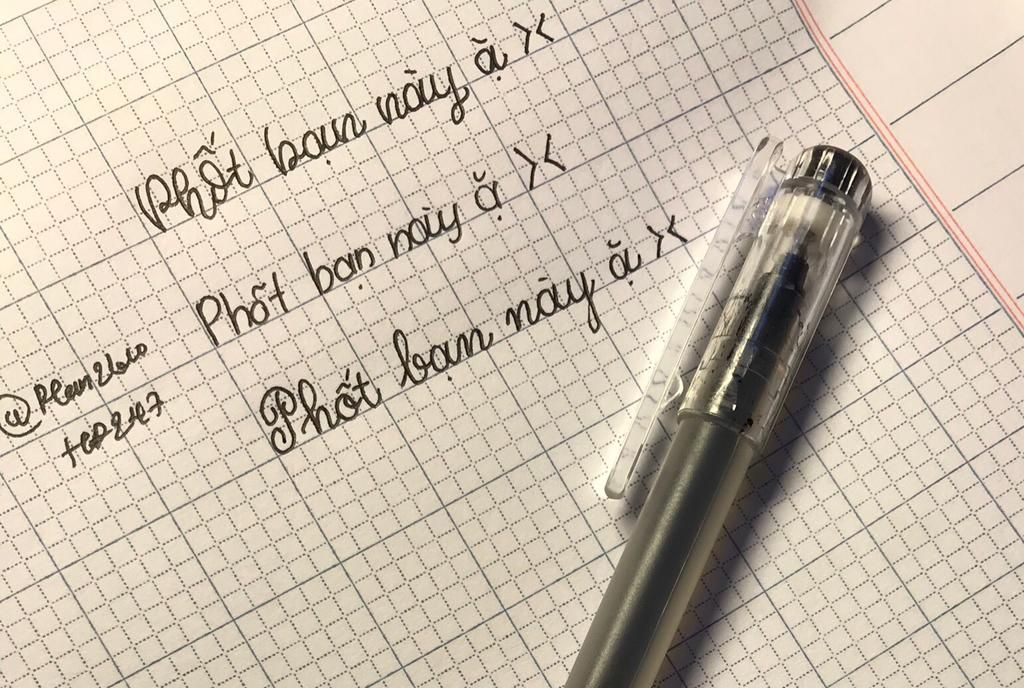 Phốt bạn này ạ̀ ><
Phốt bạn này ạ̀ ><
Phốt bạn này ạ̀ ><